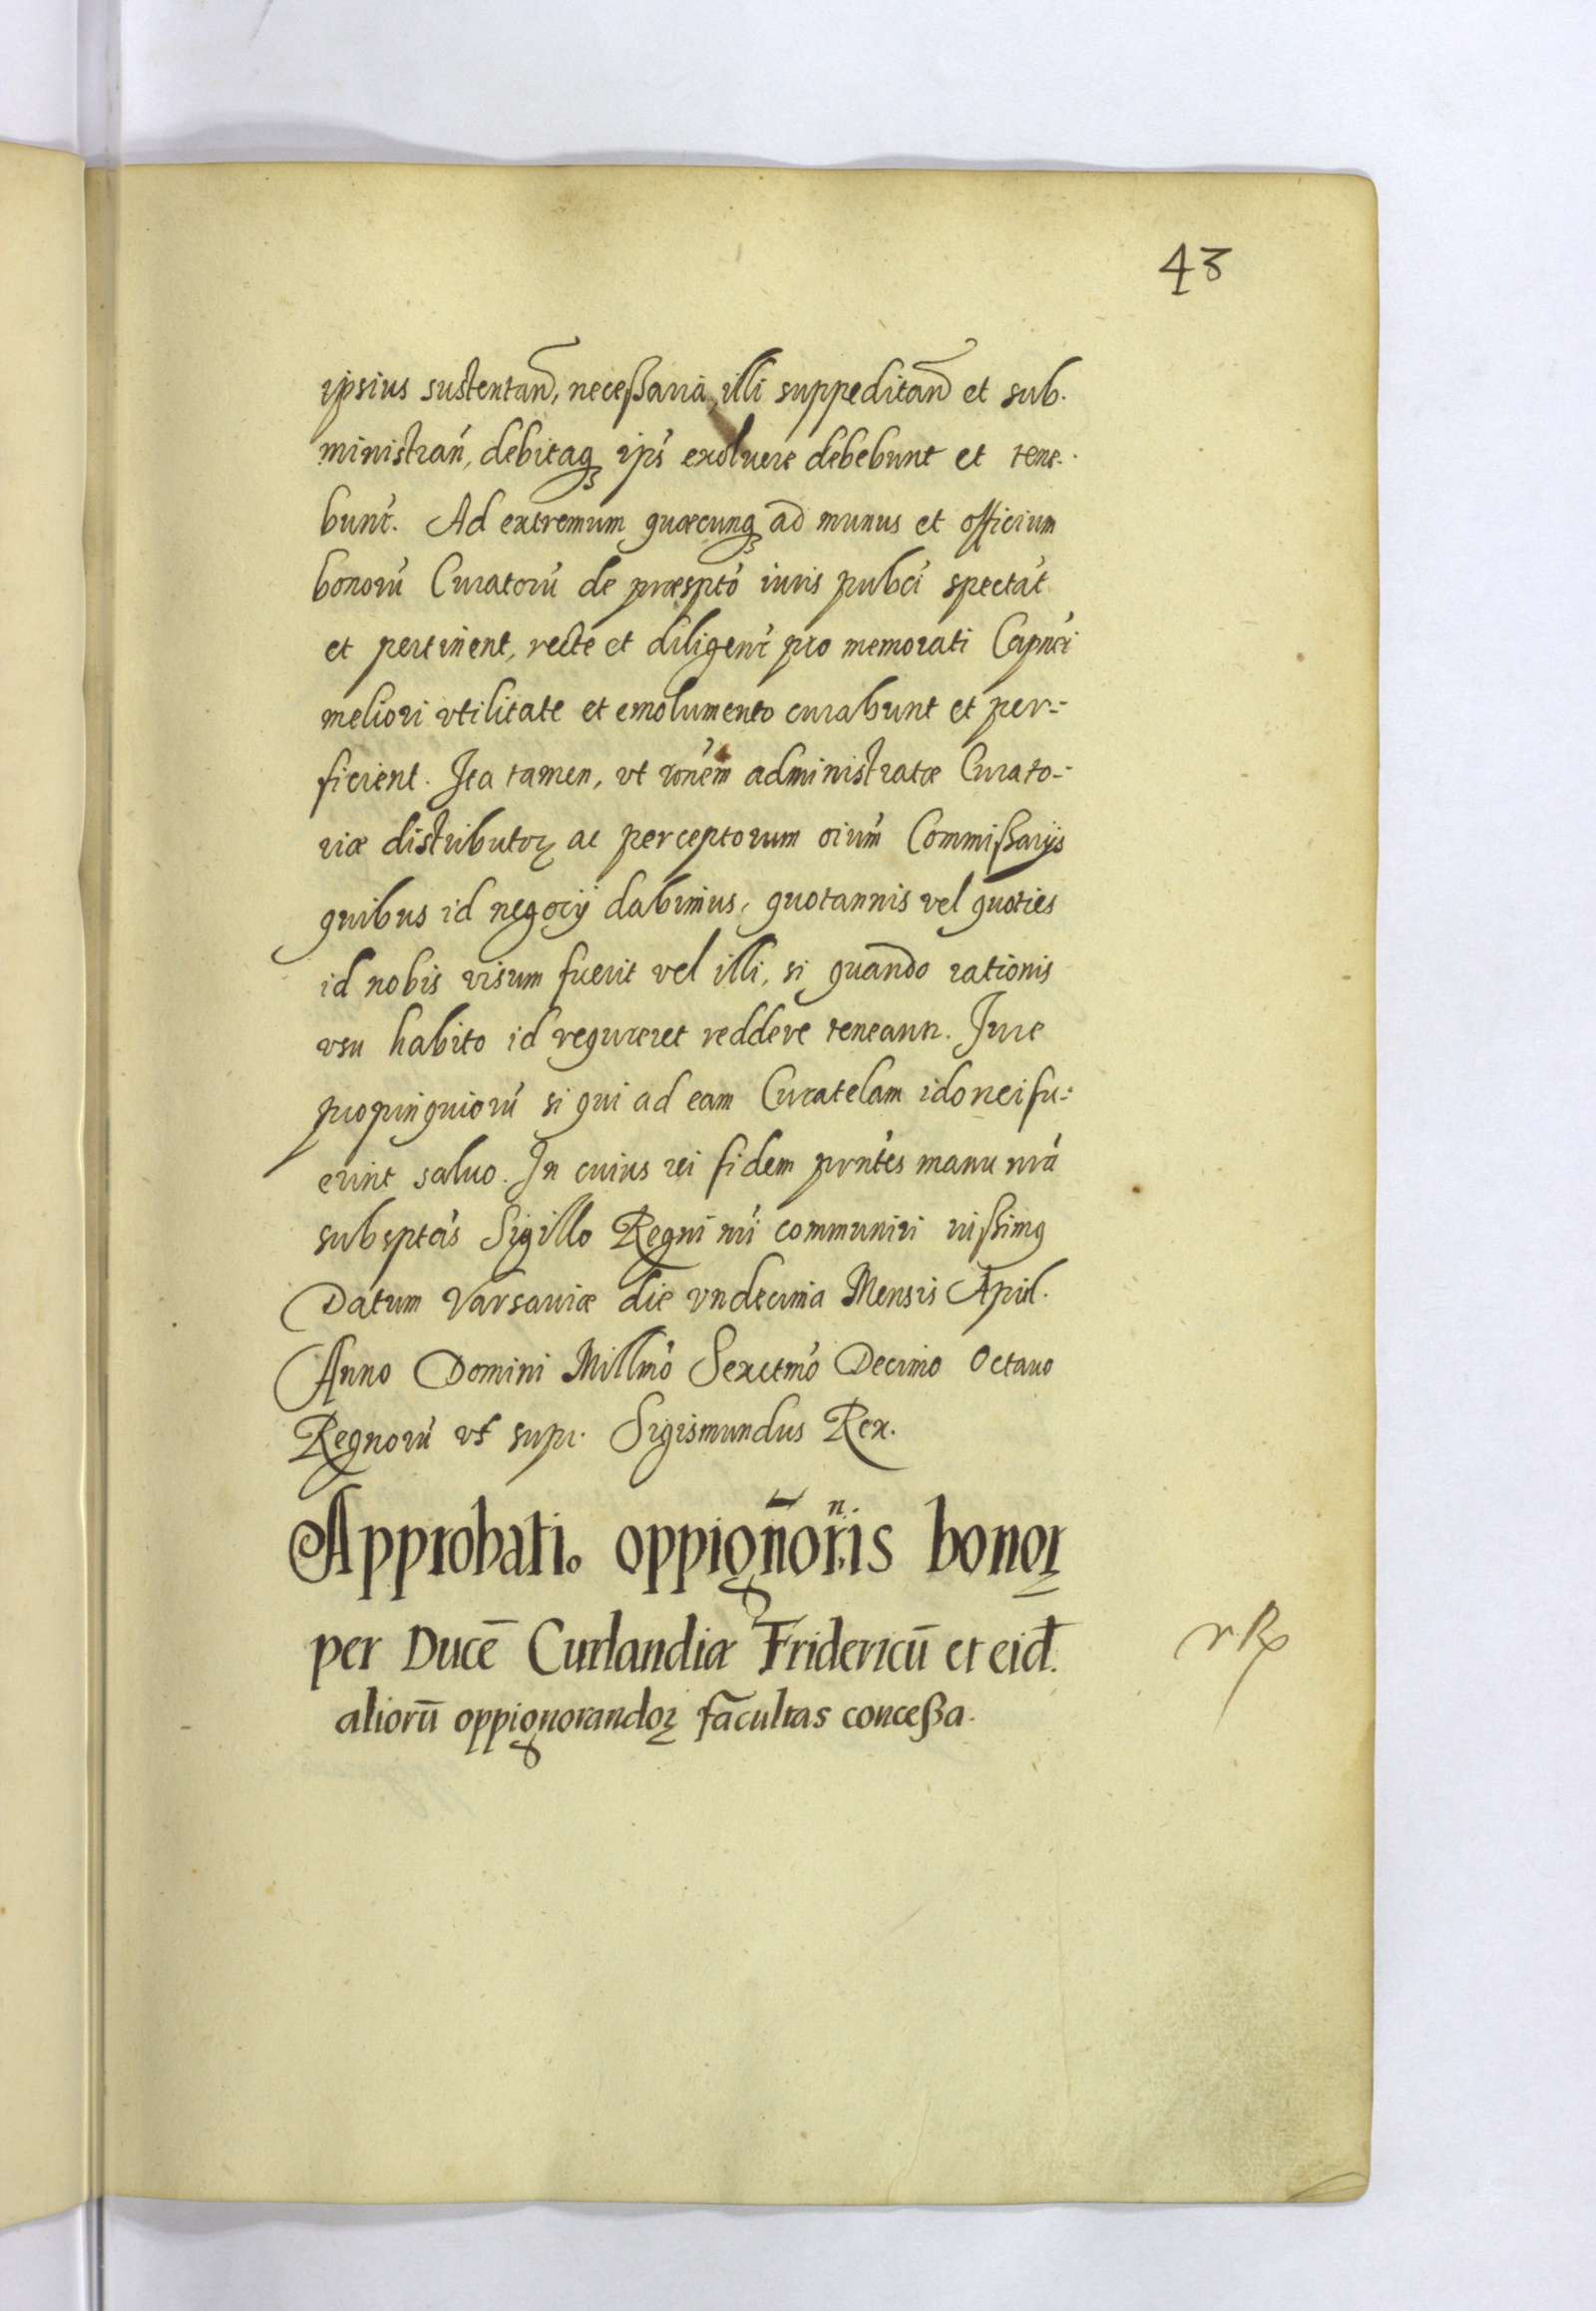 43
ipsius sustentan̄d, neceßaria illi suppeditan̄d et sub.
ministran̄, debitaqꝫ ips̄ exoluere debebunt et tene.
bunt̄. Ad extremum quæcunqꝫ ad munus et officium
bonorū Curatorū de præsptō iuris pubci spectāt
et pertinent, recte et diligent̄ pro memorati Capnei
meliori vtilitate et emolumento curabunt et per-
ficient. Ita tamen, vt rōnem administratæ Curato-
riæ distributoꝝ ac perceptorum oīum Commißarijs
quibus id negocij dabimus, quotannis vel quoties
id nobis visum fuerit vel illi, si quando rationis
vsu habito id requireret reddere teneantr. Jure
propinquiorū si qui ad eam Curatelam idonei fu-
erint saluo. In cuius rei fidem prn̄tes manu nrā
subsptās Sigillo Regni nrī communiri iußimꝰ
Datum Varsauiæ die vndecima Mensis April.
Anno Domini Millmō Sexctmō Decimo Octauo
Regnorū vt supr. Sigismundus Rex.
Approbatio oppign̄orn̄is bonoꝝ
per Ducē Curlandiæ Fridericū et eid.
aliorū oppignorandoꝝ facultas conceßa.